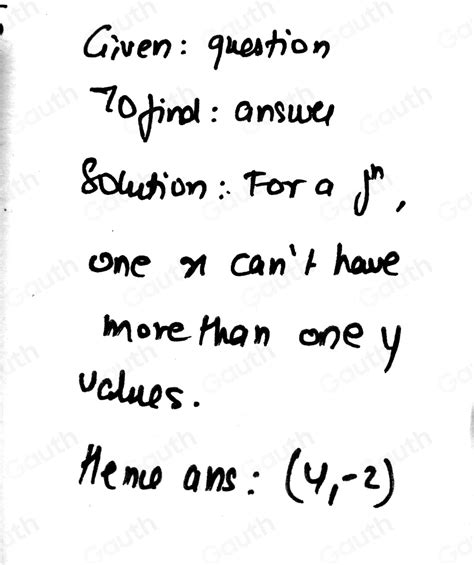 Given: question
To find: answer
Solution: For a fⁿ,
one x can't have
more than one y
values.
Hence ans: (4,-2)